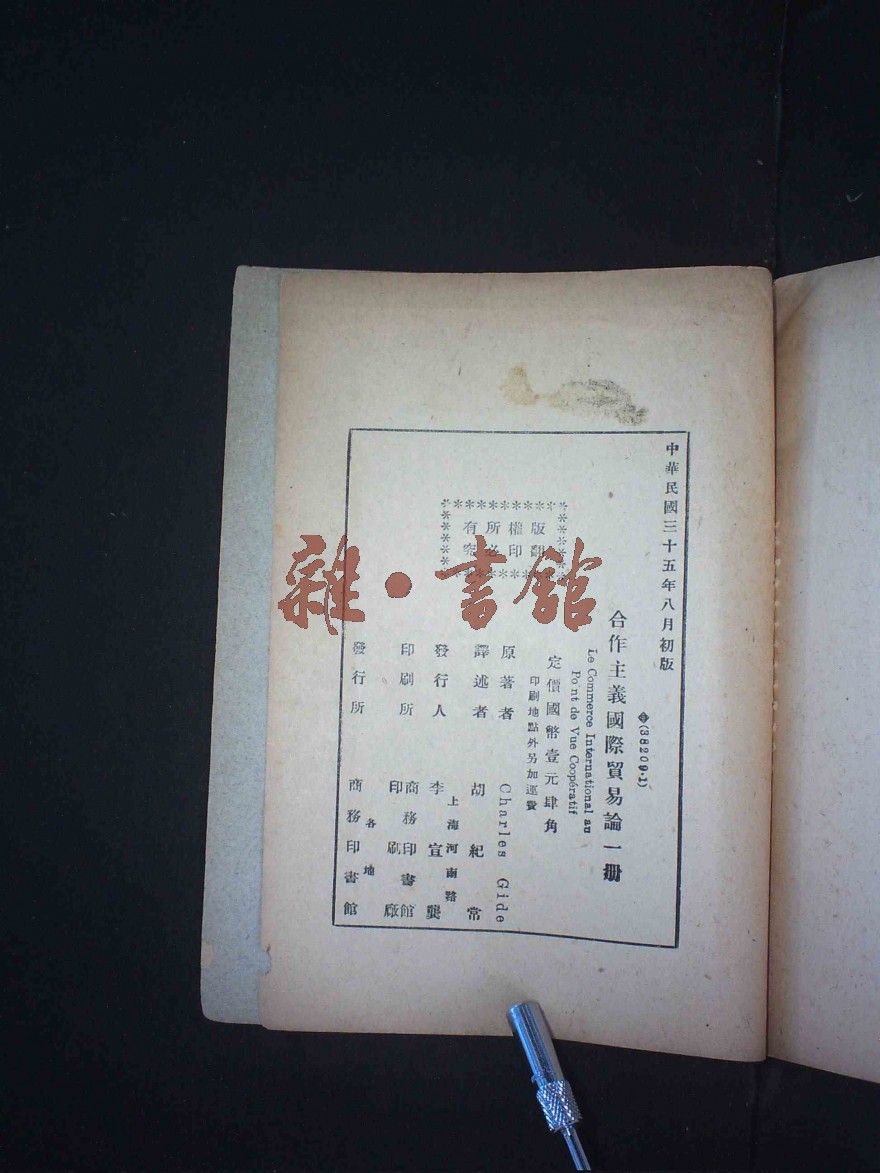 中華民國三十五年八月初版
(38209·1)
合作主義國際貿易論一冊
Le Commerce International au
Po'nt de Vue Coopératif
定價國幣壹元肆角
印刷地點外另加運費
版權所有
翻印必究
原著者 Charles Gide
譯述者 胡紀常
發行人 李宣龔
上海河南路
印刷所 商務印書館
印刷廠
發行所 商務印書館
各地
雜·書館